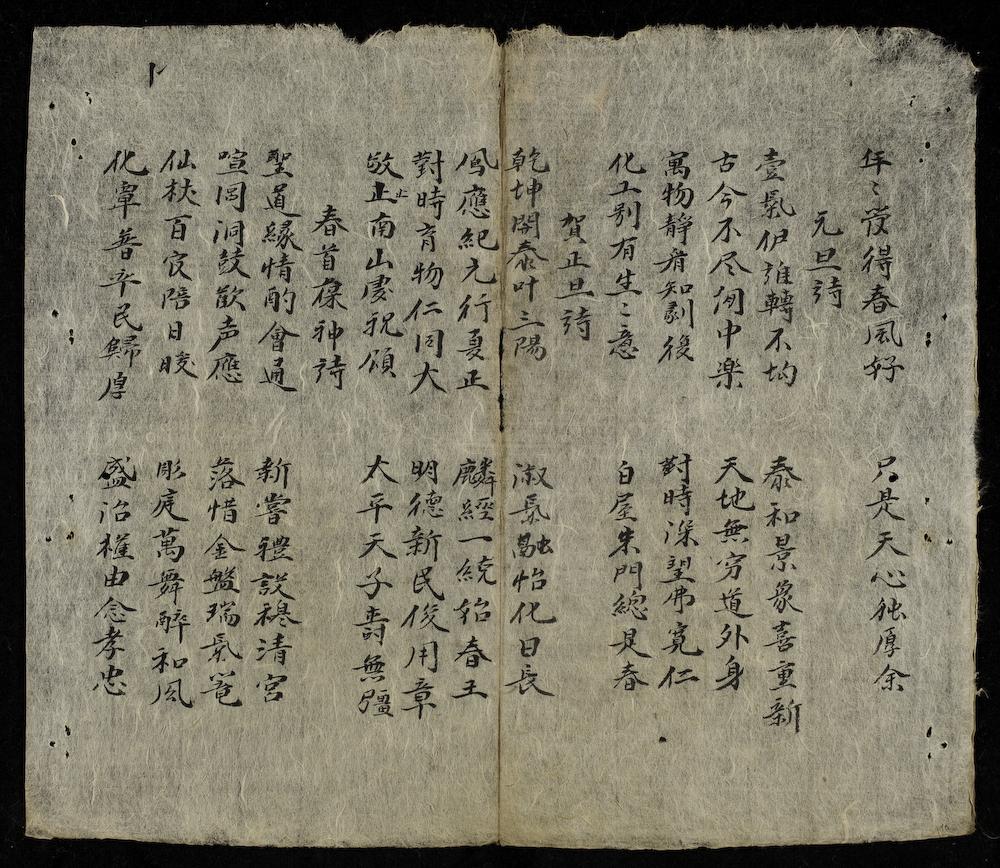 年〻受得春風好 只是天心独厚余
元旦詩
壹氣炉誰轉不均 泰和景象喜重新
古今不尽閒中楽 天地無穷道外身
寓物静看知剥後 對時深望弗寛仁
化工别有生〻意 白屋朱門總是春
賀正旦詩
乾坤開泰叶三陽 淑氣融怡化日長
鳳應紀元行夏正 麟經一統始春王
對時育物仁同大 明德新民俊用章
敬止南山虔祝頌 太平天子壽無彊
春首葆神詩
聖道緣情酌會通 新嘗禮設穆清宮
喧閙洞鼓歓声應 落惜金盤瑞氣篭
仙杖百官陪日晙 彤庭萬舞醉和風
化覃普率民歸厚 盛治權由念孝忠